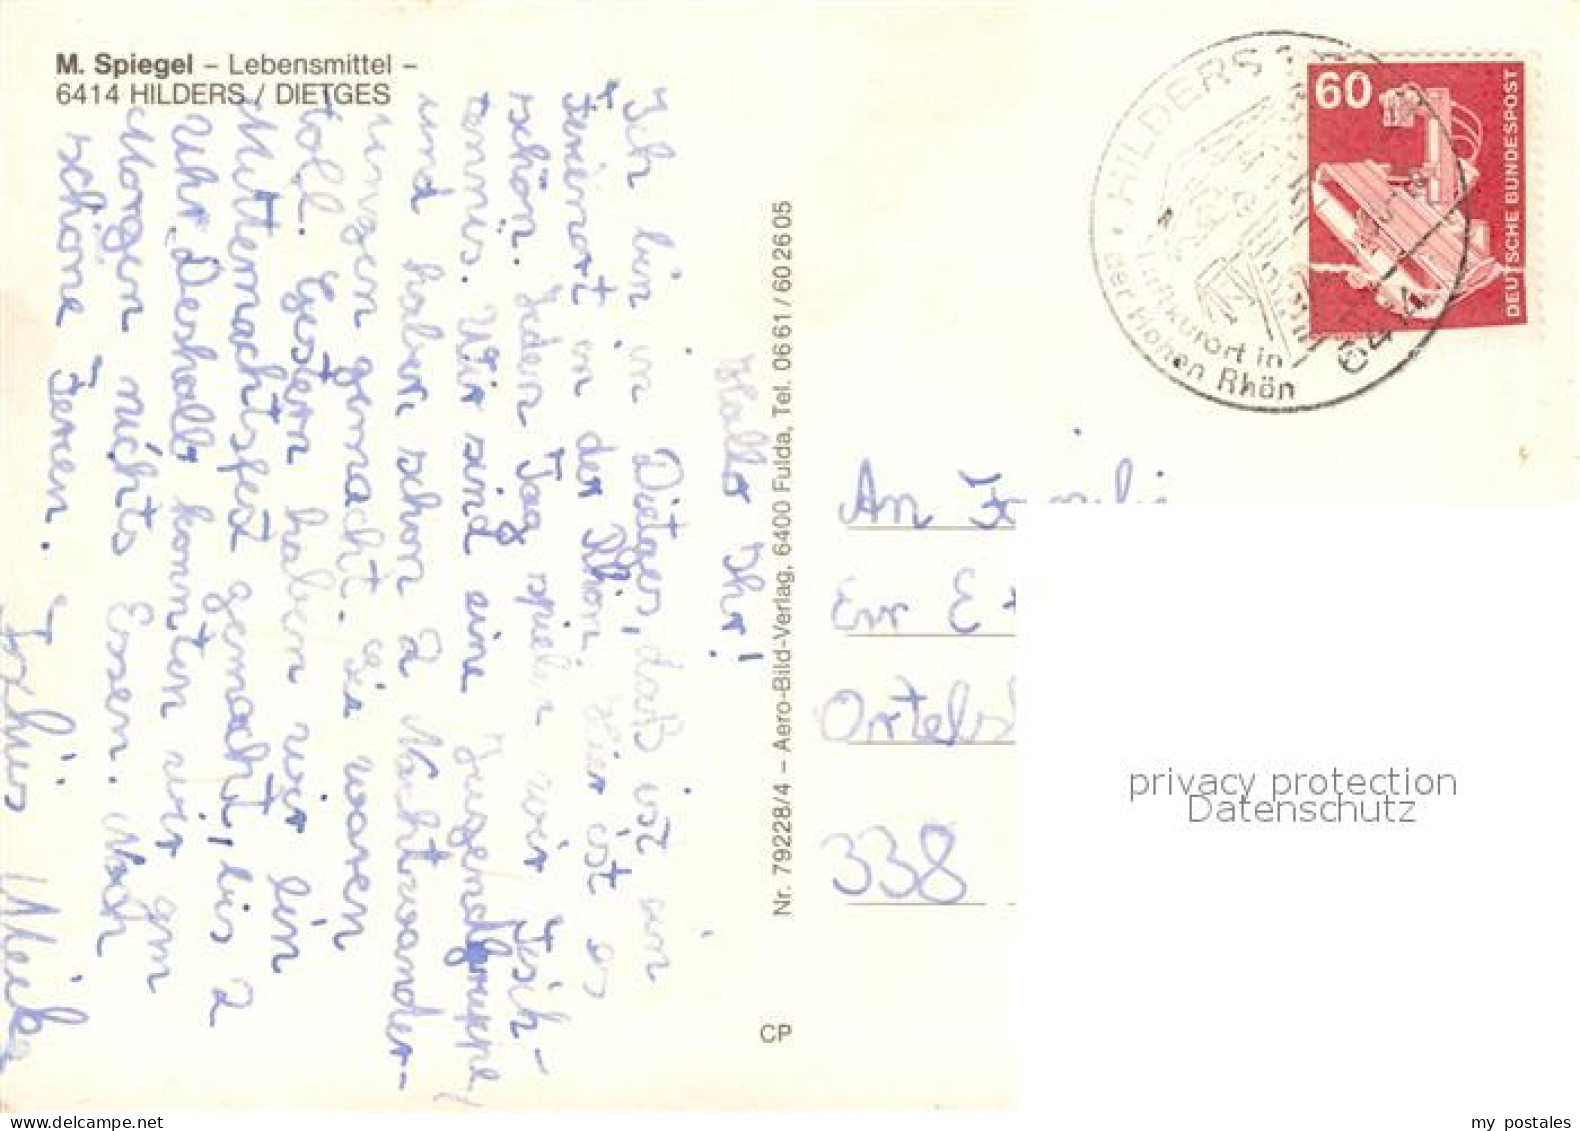 M. Spiegel – Lebensmittel –
6414 HILDERS / DIETGES
Hallo Ihr!
Ich bin in Dietges, daß ist ein
Ferienort in der Rhön. Hier ist es
schön. Jeden Tag spielen wir Tisch-
tennis. Wir sind eine Jugendgruppe,
und haben schon 2 Nachtwander-
ungen gemacht. Sie waren
toll. Gestern haben wir ein
Mitternachtsfest gemacht, bis 2
Uhr. Deshalb konnten wir am
Morgen nichts Essen. Noch
schöne Ferien.
Nr. 79228/4 – Aero-Bild-Verlag, 6400 Fulda, Tel. 0661/602605
CP
HILDERS
Luftkurort in
der Hohen Rhön
6414
60
DEUTSCHE BUNDESPOST
An Familie
338
privacy protection
Datenschutz
my postales